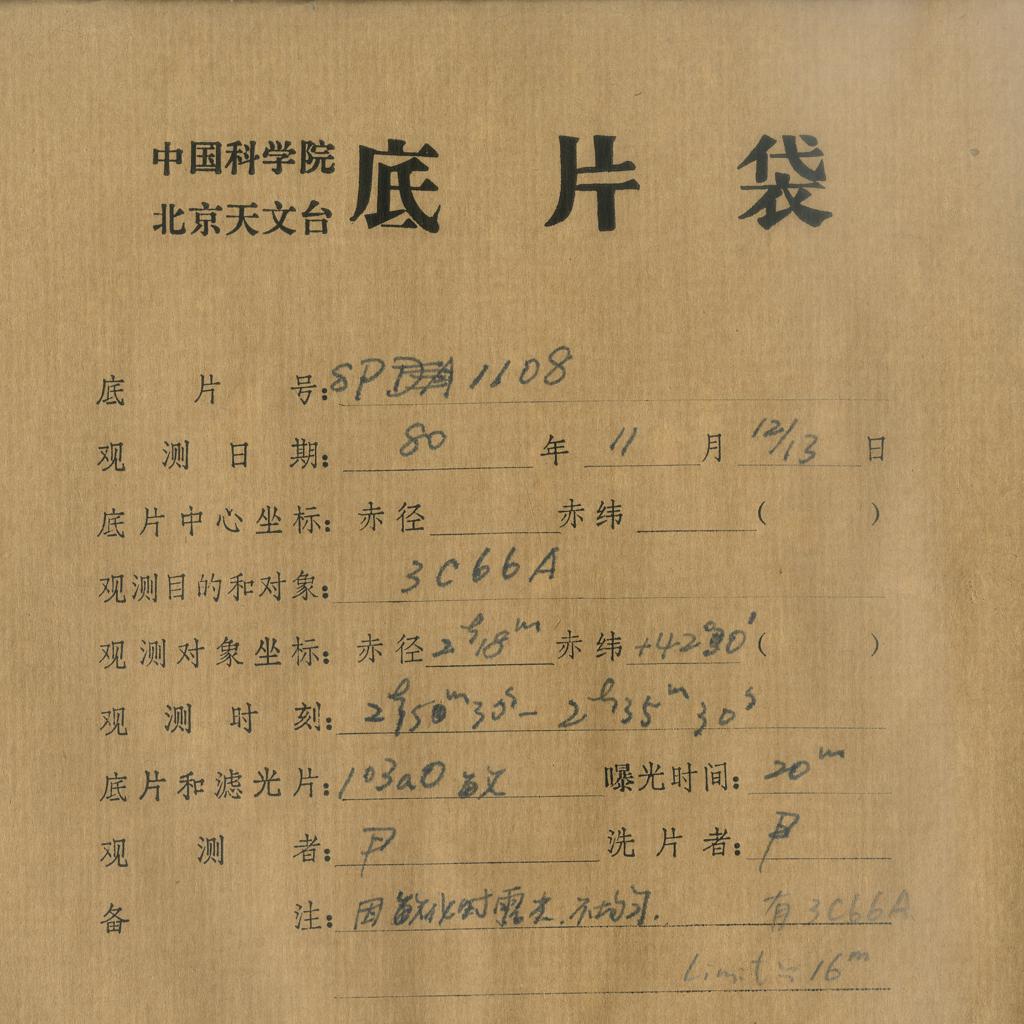 中国科学院
北京天文台
底片袋
底片号：SP 1108
观测日期：80年11月12/13日
底片中心坐标：赤径 赤纬 （ ）
观测目的和对象：3C66A
观测对象坐标：赤径2h18m赤纬+42°30'（ ）
观测时刻：2h50m30s－2h35m30s
底片和滤光片：103aO 敏 曝光时间：20m
观测者： 洗片者：
备注：因敏化时露光.不均匀. 有3C66A
Limit≈16m